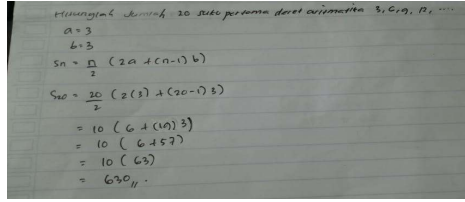 Hitunglah Jumlah 20 suku pertama deret aritmatika 3, 6, 9, 12, ....
a = 3
b = 3
Sn = n/2 (2a + (n-1) b)
S20 = 20/2 (2(3) + (20-1) 3)
= 10 (6 + (19) 3)
= 10 (6 + 57)
= 10 (63)
= 630 ,, .